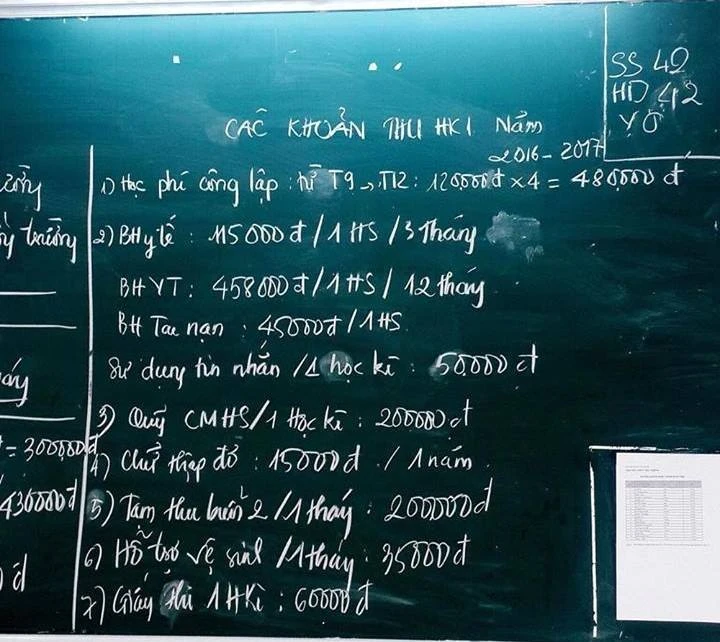 SS 42
HD 42
VO
CÁC KHOẢN THU HK1 Năm
2016-2017
1) Học phí công lập: từ T9 → T12: 120.000đ x 4 = 480.000 đ
2) BH y tế: 115000đ / 1 HS / 3 Tháng
BHYT: 458000đ / 1 HS / 12 tháng
BH Tai nạn: 45000đ / 1HS
Sử dụng tin nhắn / 1 học kì: 50.000 đ
3) Quỹ CMHS / 1 Học kì: 200000 đ
4) Chữ thập đỏ: 15000đ / 1 năm
5) Tạm thu buổi 2 / 1 tháy: 200.000đ
6) Hỗ trợ vệ sinh / 1 tháy: 35000đ
7) Giấy thi 1 HKì: 60000 đ
trường
= 300.000đ
430000đ
đ